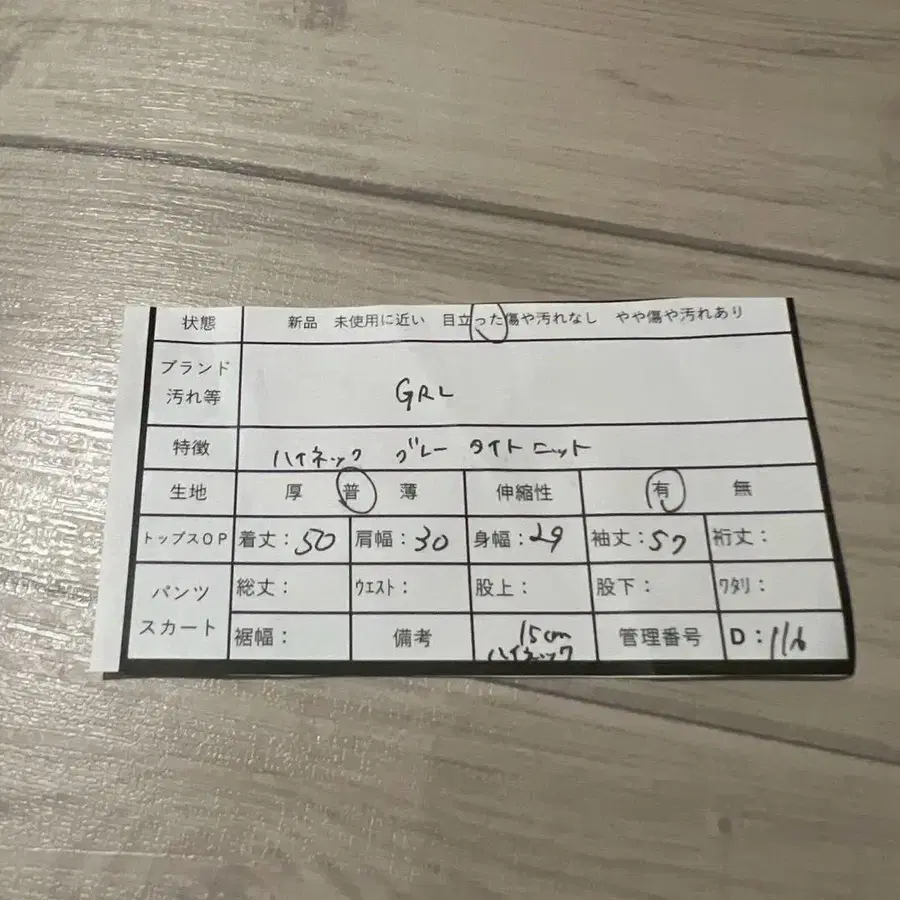 状態 新品 未使用に近い 目立った傷や汚れなし やや傷や汚れあり
ブランド
汚れ等 GRL
特徴 ハイネック グレー タイトニット
生地 厚 普 薄 伸縮性 有 無
トップスOP 着丈:50 肩幅:30 身幅:29 袖丈:57 裄丈:
パンツ
スカート
総丈: ウエスト: 股上: 股下: ワタリ:
裾幅: 備考 15cm
ハイネック 管理番号 D:116